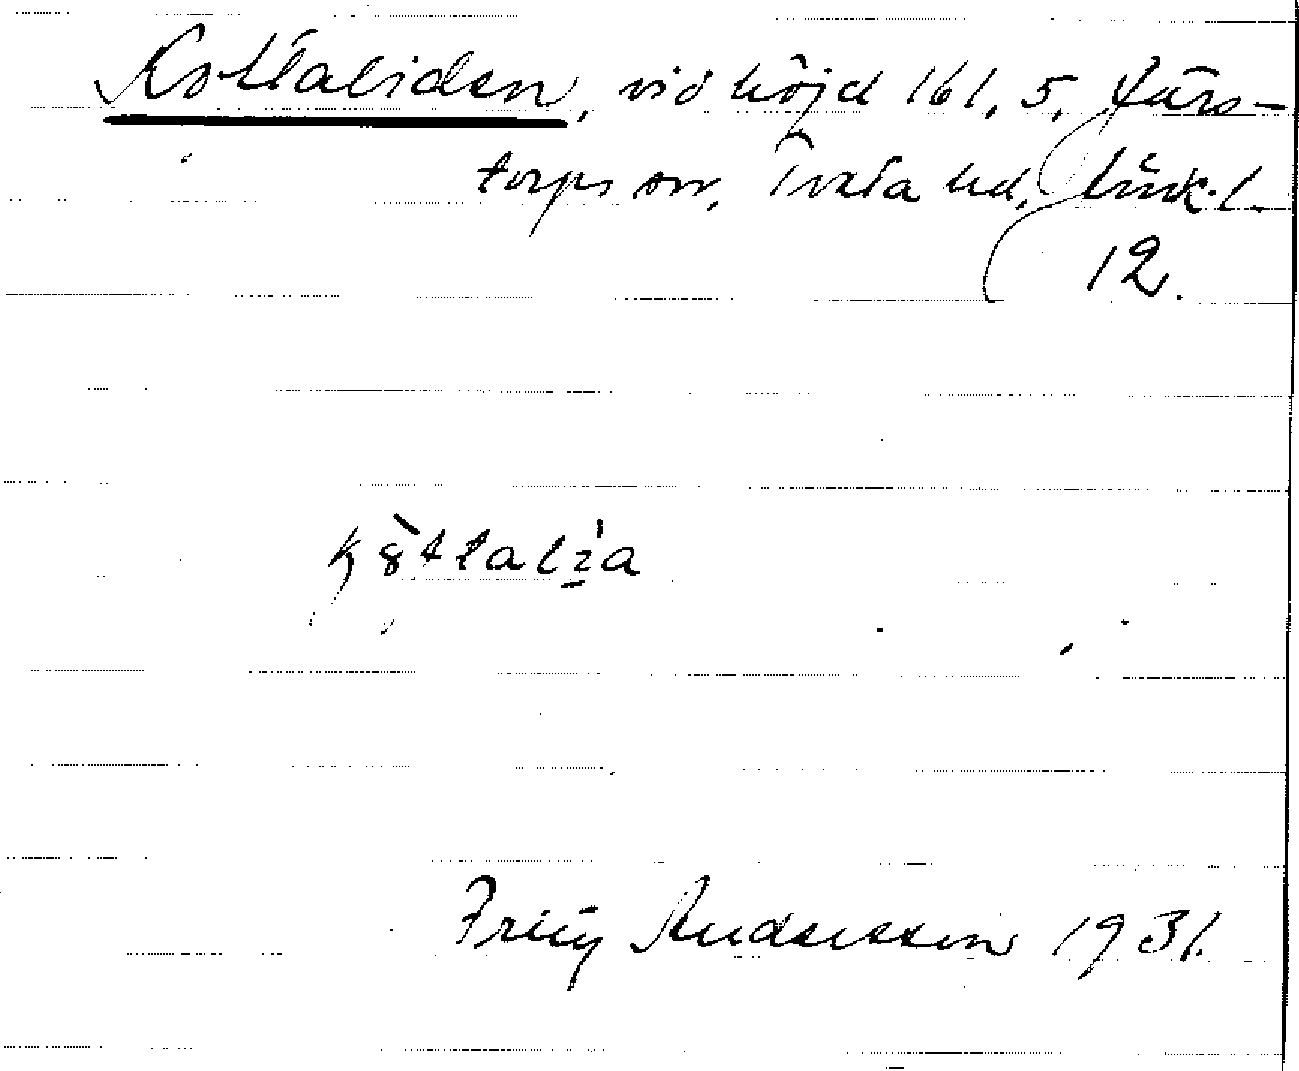 Kottaliden, vid höjd 161,5, Furs-
torps sn, Tveta hd, Jönk. l.
12.
Fritz Andersson 1931.